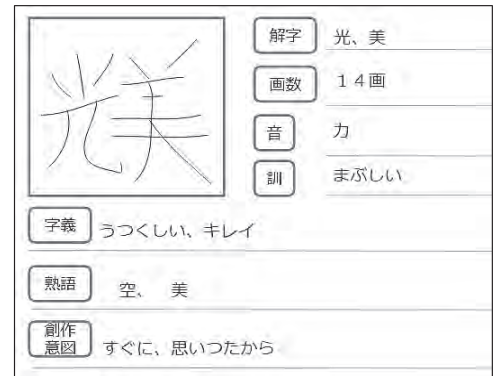 解字 光、美
画数 １４画
音 カ
訓 まぶしい
字義 うつくしい、キレイ
熟語 空、 美
創作意図 すぐに、思いつたから